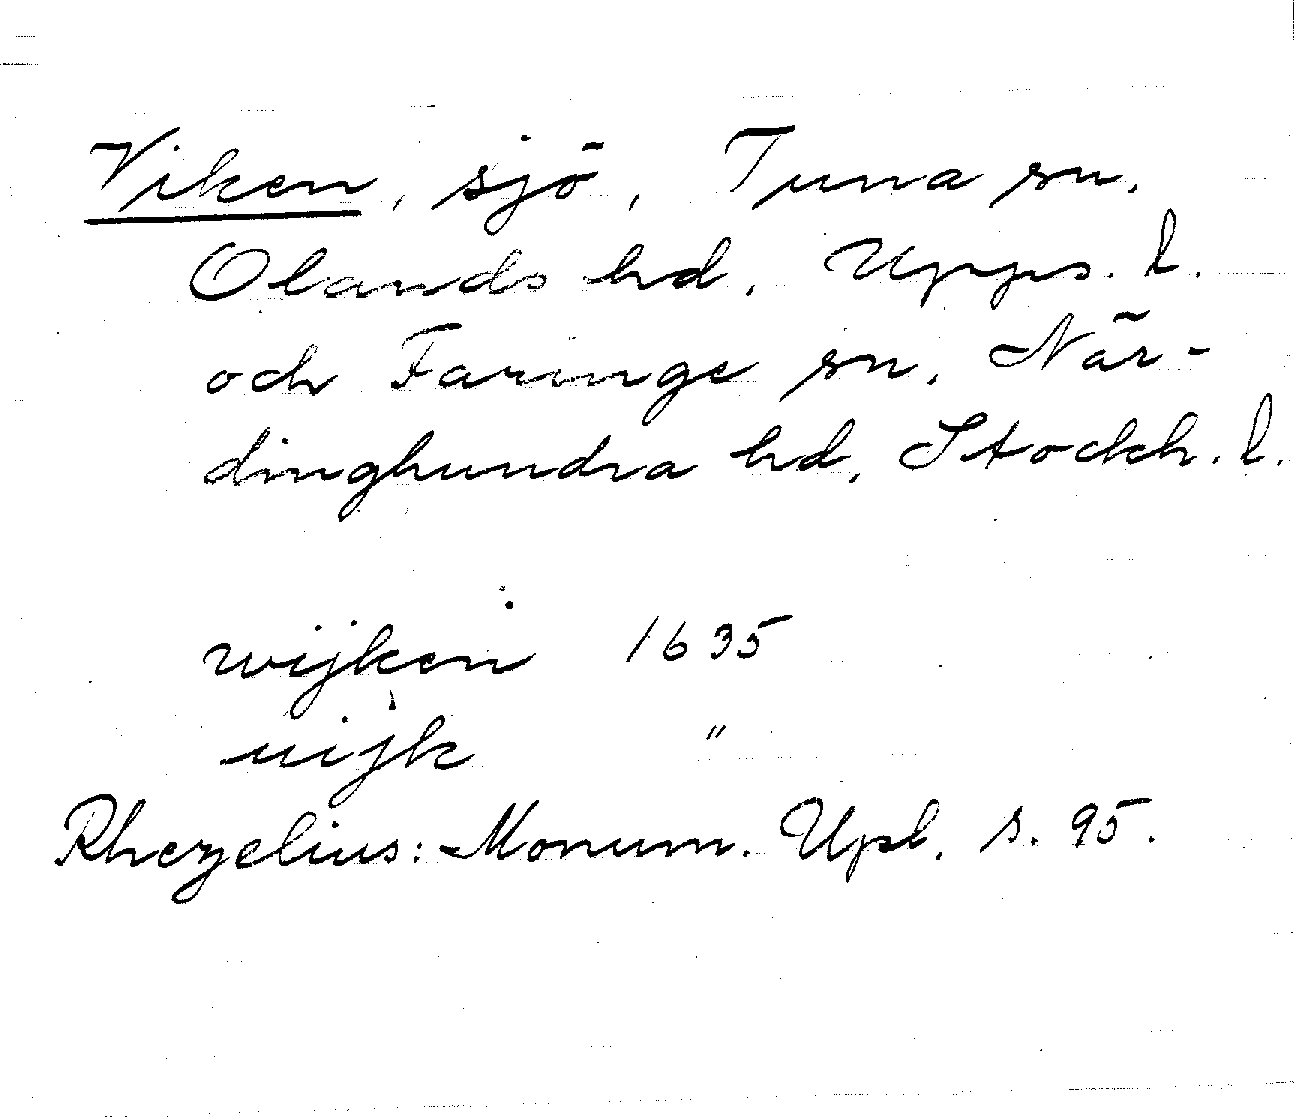 Viken, sjö, Tuna sn,
Olands hd, Upps. l.
och Faringe sn, När-
dinghundra hd, Stockh. l.
wijken 1635
uijk "
Rhezelius: Monum. Upl. s. 95.